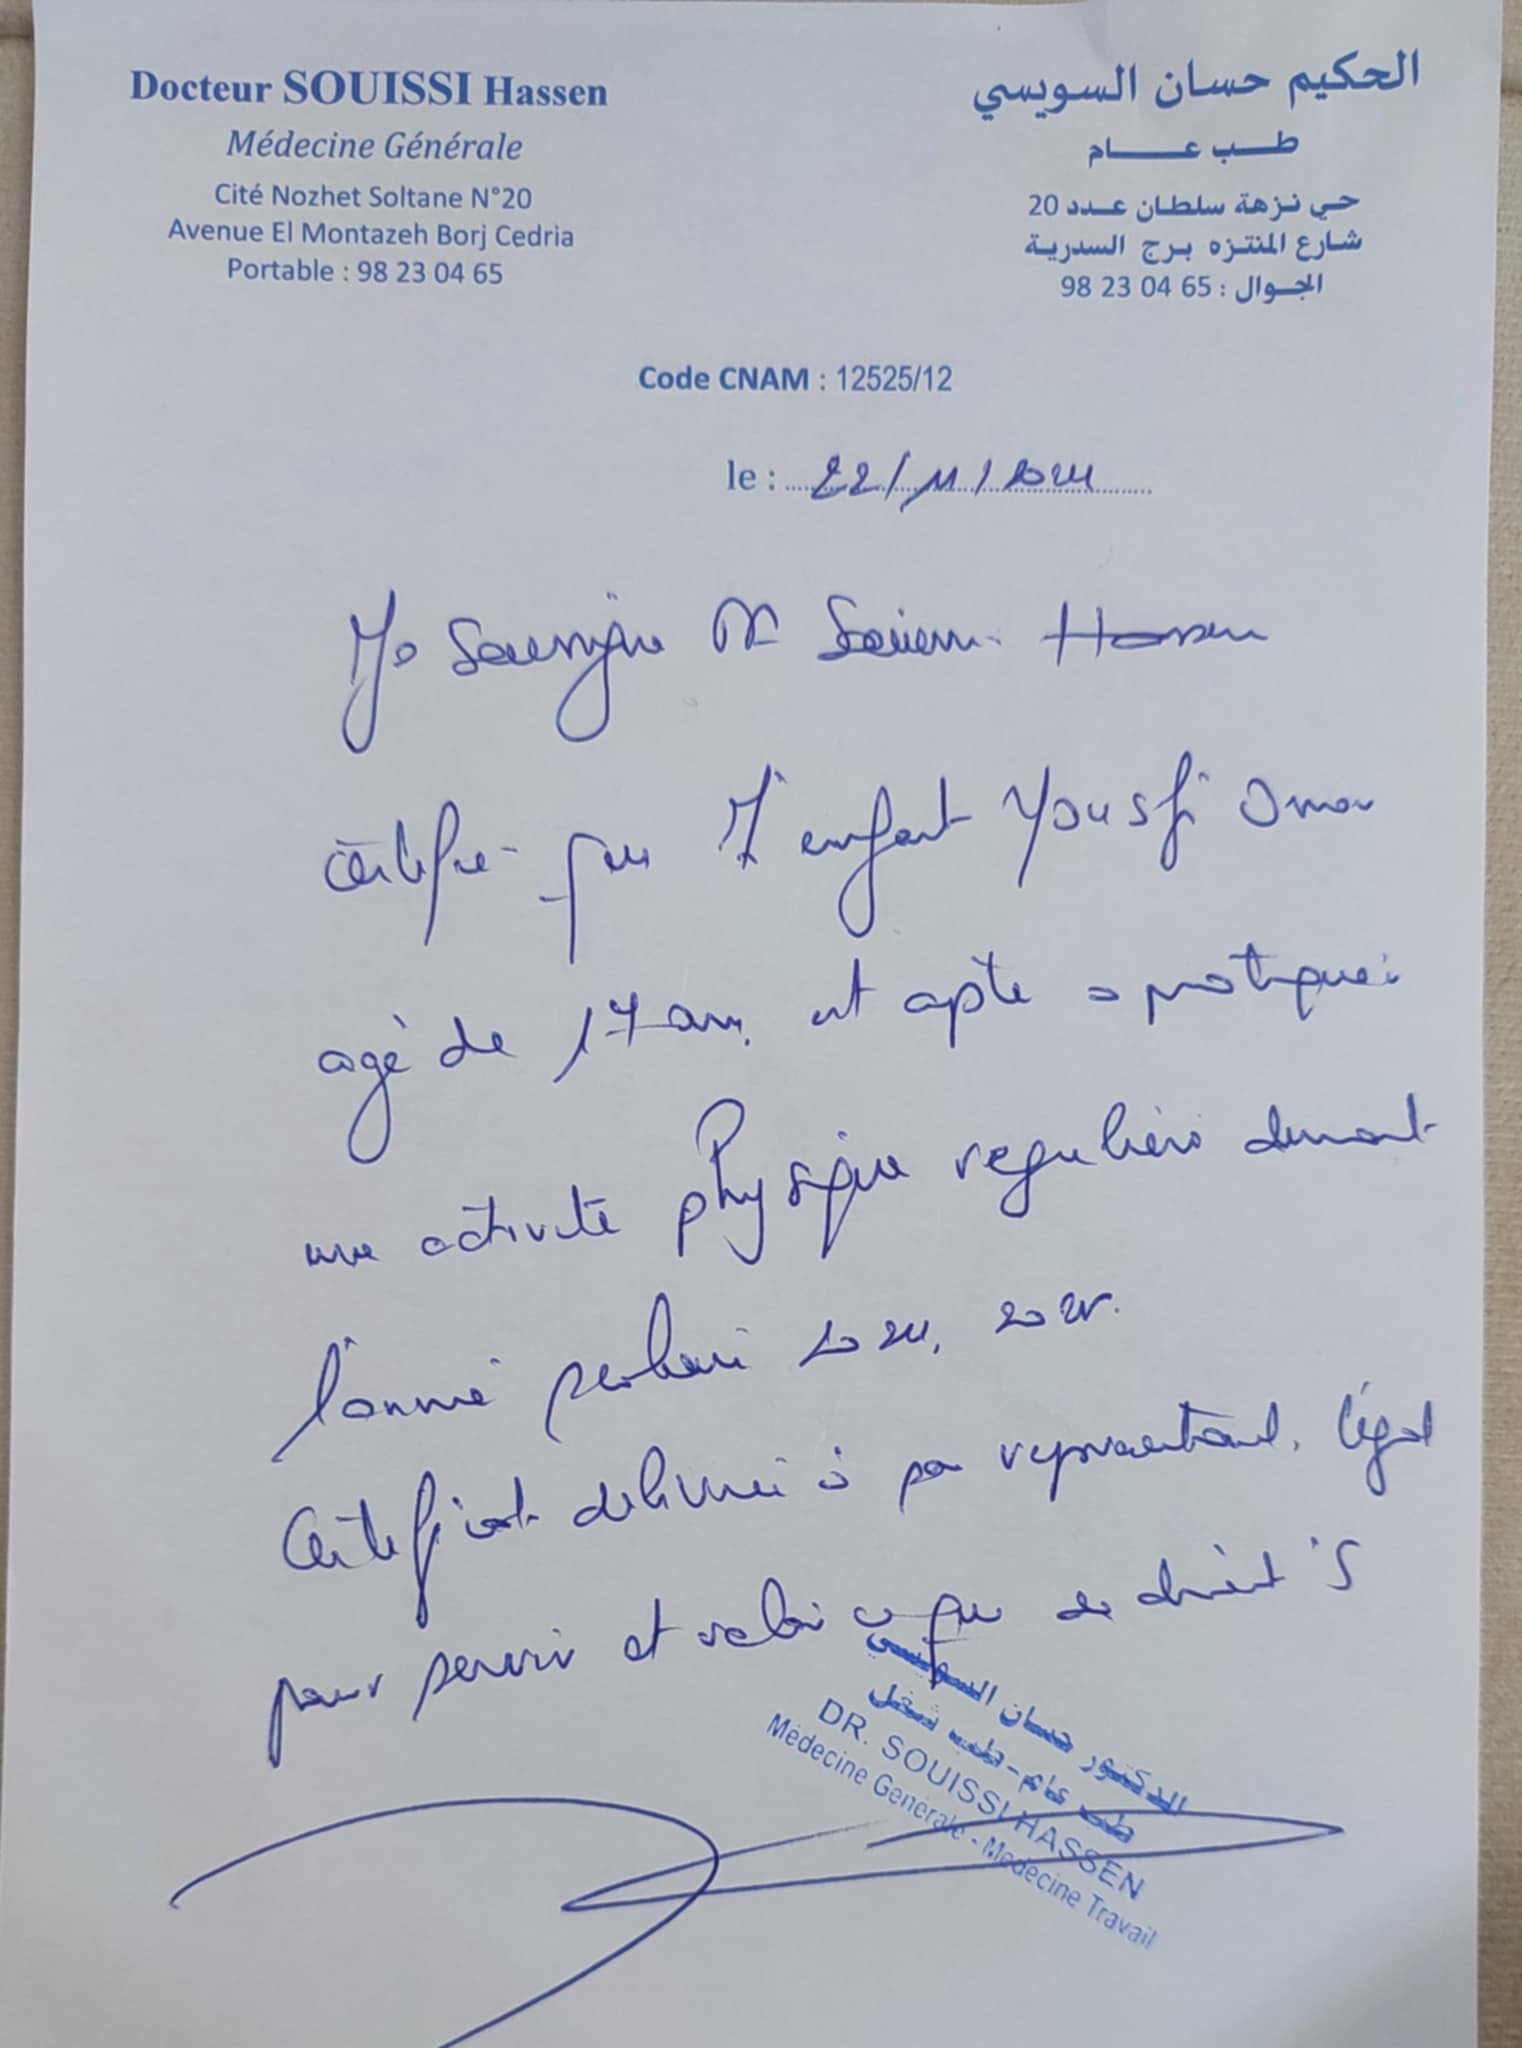 Docteur SOUISSI Hassen
Médecine Générale
Cité Nozhet Soltane N°20
Avenue El Montazeh Borj Cedria
Portable : 98 23 04 65
الحكيم حسان السويسي
طب عام
حي نزهة سلطان عدد 20
شارع المنتزه برج السدرية
الجوال : 98 23 04 65
Code CNAM : 12525/12
le : 22/11/2024
Je Soussigné Dr Souissi Hassen
certifie que l'enfant Yousfi Omar
agé de 17 ans est apte a pratiquer
une activité physique reguliére durant
l'année scolaire 2024, 2025.
Certificat délivré à son representant légal
pour servir et valoir ce que de droit
الدكتور حسان السويسي
طب عام - طب شغل
DR. SOUISSI HASSEN
Médecine Générale - Médecine Travail